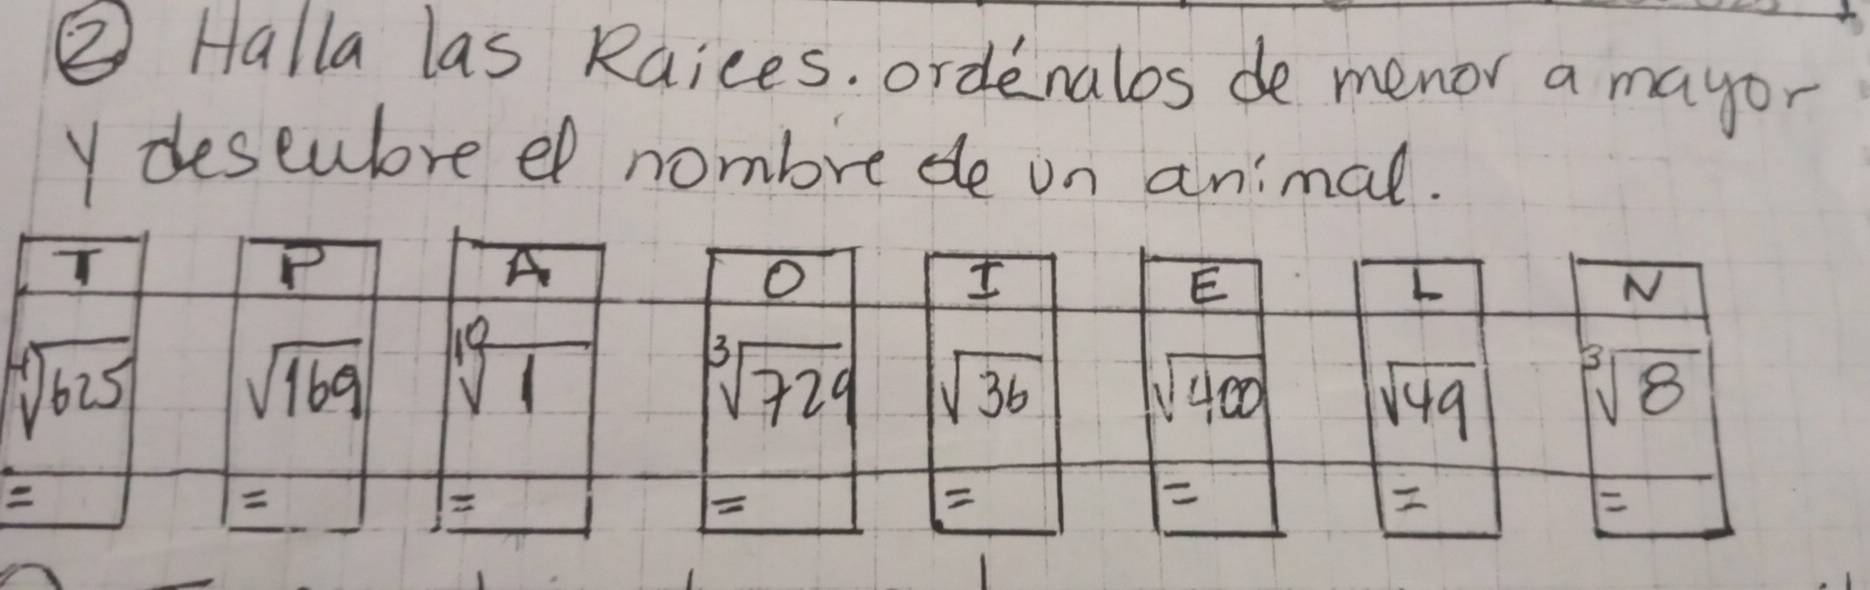 ② Halla las Raices. ordénalos de menor a mayor
y descubre el nombre de un animal.
T P A O I E L N
⁴√625 √169 ¹⁹√1 ³√729 √36 √400 √49 ³√8
= = = = = = = =